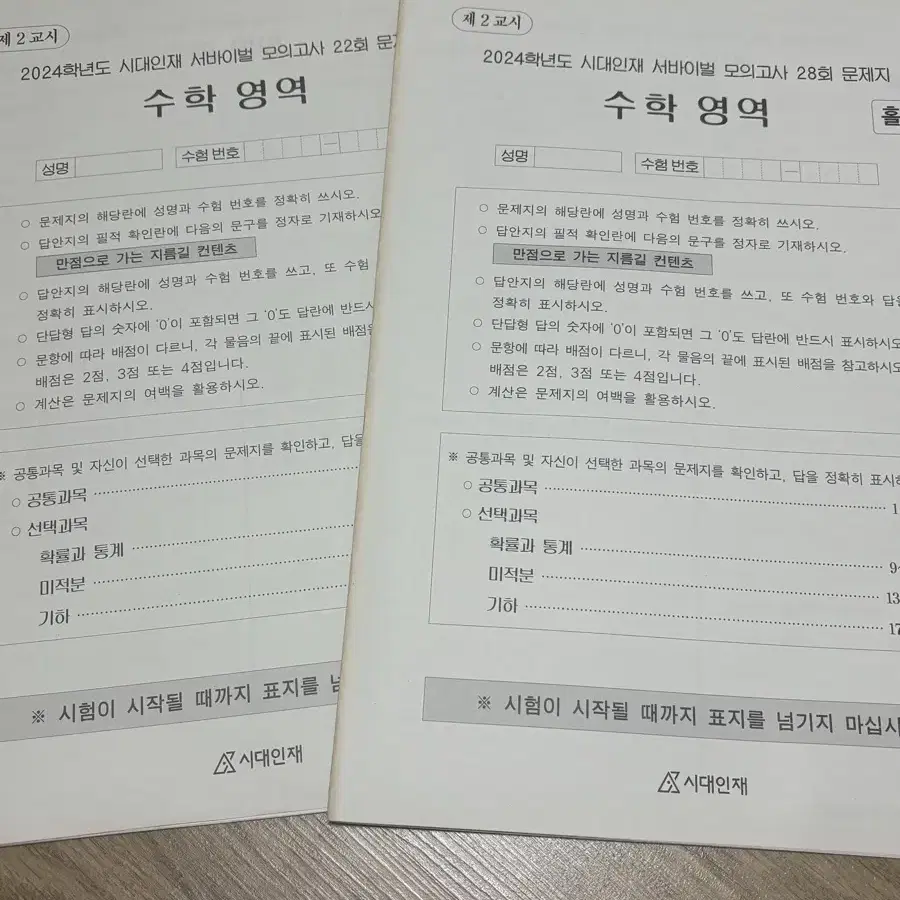 제 2 교시
2024학년도 시대인재 서바이벌 모의고사 22회
수학 영역
성명
수험 번호
○ 문제지의 해당란에 성명과 수험 번호를 정확히 쓰시오.
○ 답안지의 필적 확인란에 다음의 문구를 정자로 기재하시오
만점으로 가는 지름길 컨텐츠
○ 답안지의 해당란에 성명과 수험 번호를 쓰고, 또 수험
정확히 표시하시오.
○ 단답형 답의 숫자에 '0'이 포함되면 그 '0'도 답란에 반드시
○ 문항에 따라 배점이 다르니, 각 물음의 끝에 표시된 배점을
배점은 2점, 3점 또는 4점입니다.
○ 계산은 문제지의 여백을 활용하시오.
※ 공통과목 및 자신이 선택한 과목의 문제지를 확인하고, 답을
○ 공통과목
○ 선택과목
확률과 통계
미적분
기하
※ 시험이 시작될 때까지 표지를
시대인재
제 2 교시
2024학년도 시대인재 서바이벌 모의고사 28회 문제지
수학 영역
홀
성명
수험 번호
○ 문제지의 해당란에 성명과 수험 번호를 정확히 쓰시오.
○ 답안지의 필적 확인란에 다음의 문구를 정자로 기재하시오.
만점으로 가는 지름길 컨텐츠
○ 답안지의 해당란에 성명과 수험 번호를 쓰고, 또 수험 번호와 답을
정확히 표시하시오.
○ 단답형 답의 숫자에 '0'이 포함되면 그 '0'도 답란에 반드시 표시하시오
○ 문항에 따라 배점이 다르니, 각 물음의 끝에 표시된 배점을 참고하시오
배점은 2점, 3점 또는 4점입니다.
○ 계산은 문제지의 여백을 활용하시오.
※ 공통과목 및 자신이 선택한 과목의 문제지를 확인하고, 답을 정확히 표시하
○ 공통과목 1
○ 선택과목
확률과 통계 9
미적분 13
기하 17
※ 시험이 시작될 때까지 표지를 넘기지 마십시
시대인재